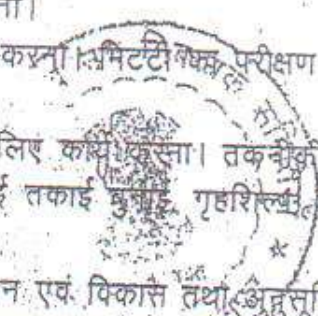 ना।
करना। मिटटी का परीक्षण
लिए कार्य करना। तकनीकी
ई तकाई बुनाई गृहशिल्प
न एवं विकास तथा अनुसूचि